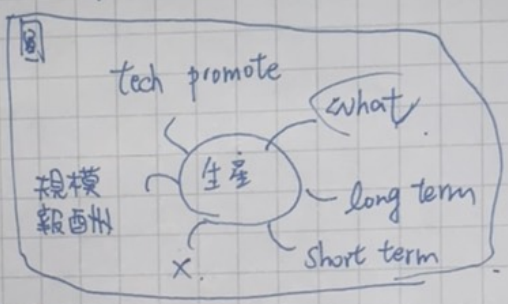 圖
tech promote
what
生產
規模
報酬
long term
short term
X